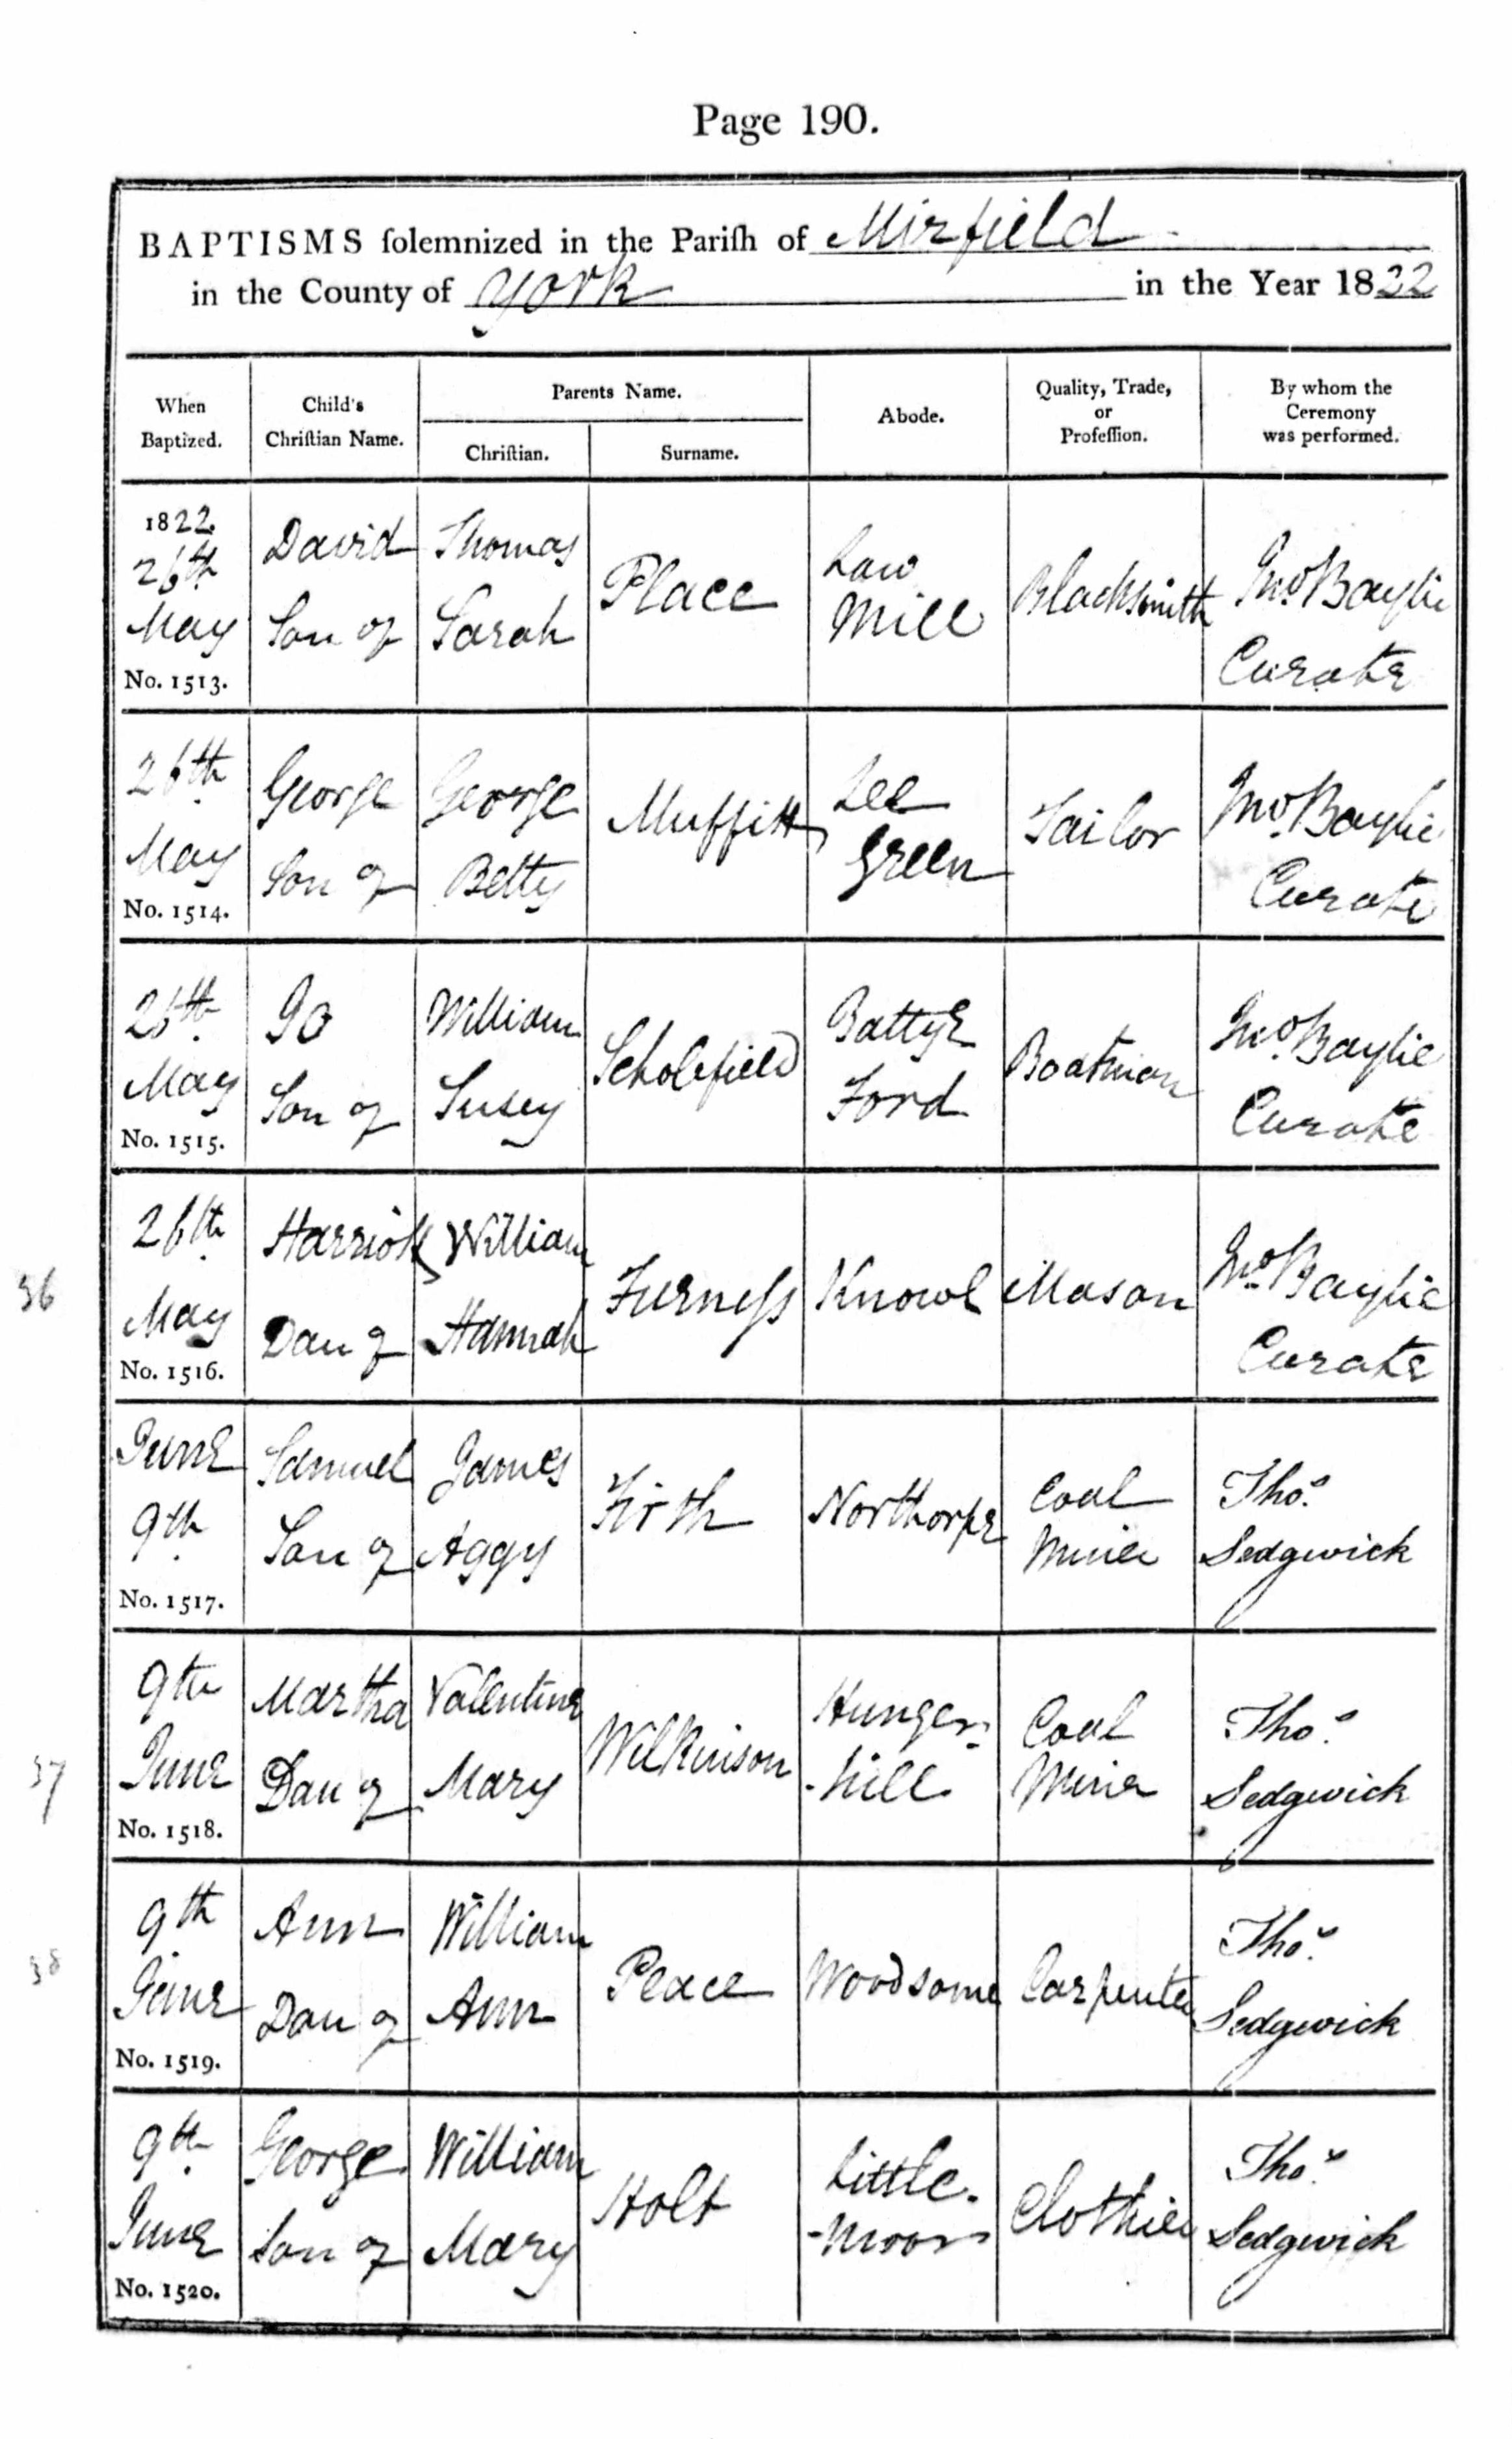 Page 190.
BAPTISMS ſolemnized in the Pariſh of Mirfield
in the County of York in the Year 1822
When
Baptized.
Child's
Chriſtian Name.
Parents Name.
Chriſtian.
Surname.
Abode.
Quality, Trade,
or
Profeſſion.
By whom the
Ceremony
was performed.
1822.
26th
May
No. 1513.
David
Son of
Thomas
Sarah
Place
Low
Mill
Blacksmith
Jno. Baylie
Curate
26th
May
No. 1514.
George
Son of
George
Betty
Muffitt
Lee
Green
Tailor
Jno. Baylie
Curate
26th
May
No. 1515.
Jo
Son of
William
Susey
Scholefield
Battye
Ford
Boatman
Jno. Baylie
Curate
36
26th
May
No. 1516.
Harriott
Dau of
William
Hannah
Furneſs
Knowl
Mason
Jno. Baylie
Curate
June
9th
No. 1517.
Samuel
Son of
James
Aggy
Firth
Northorpe
Coal
Miner
Thos.
Sedgwick
37
9th
June
No. 1518.
Martha
Dau of
Valentine
Mary
Wilkinson
Hunger-
-hill
Coal
Miner
Thos.
Sedgwick
38
9th
June
No. 1519.
Ann
Dau of
William
Ann
Peace
Woodsome
Carpenter
Thos.
Sedgwick
9th
June
No. 1520.
George
Son of
William
Mary
Holt
Little-
-moor
Clothier
Thos.
Sedgwick